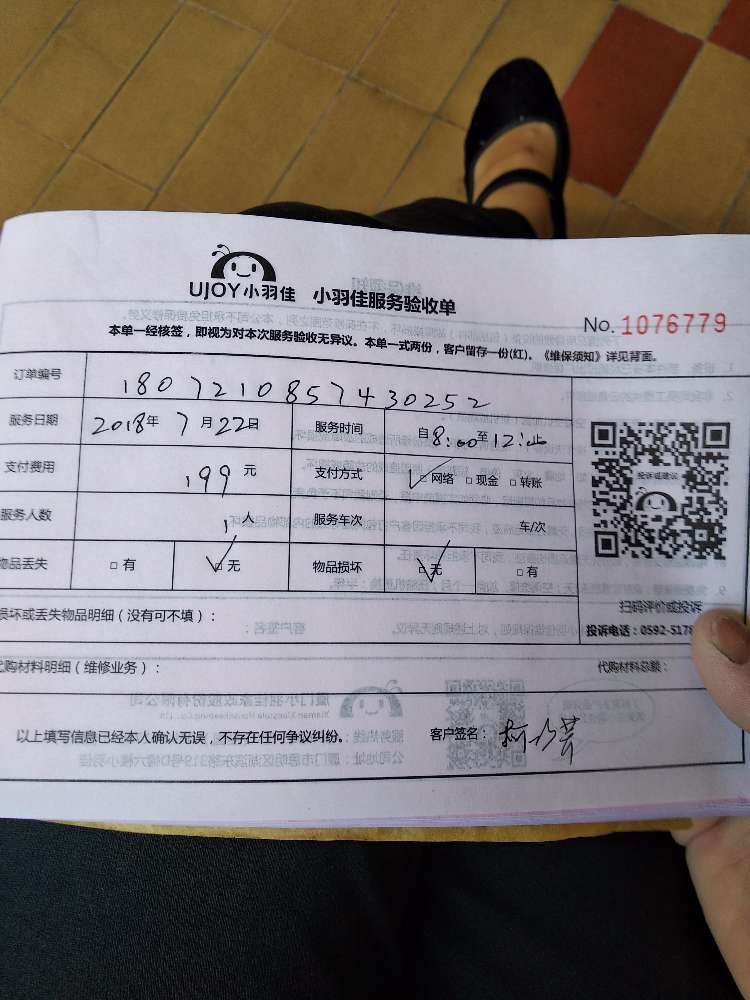 UJOY小羽佳 小羽佳服务验收单
No. 1076779
本单一经核签，即视为对本次服务验收无异议。本单一式两份，客户留存一份(红)。《维保须知》详见背面。
订单编号 180721085743025 2
服务日期 2018年 7月22日 服务时间 自8:00至12:止
支付费用 199元 支付方式 □网络 □现金 □转账
服务人数 1人 服务车次 车/次
物品丢失 □有 □无 物品损坏 □无 □有
投诉或建议
扫码评价或投诉
损坏或丢失物品明细（没有可不填）：
投诉电话：0592-5178
代购材料明细（维修业务）： 代购材料总额：
以上填写信息已经本人确认无误，不存在任何争议纠纷。 客户签名：